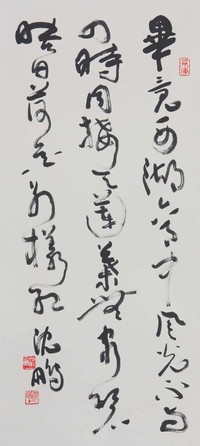 畢竟西湖六月中風光不與
四時同接天蓮葉無窮碧
映日荷花別樣紅 沈鵬